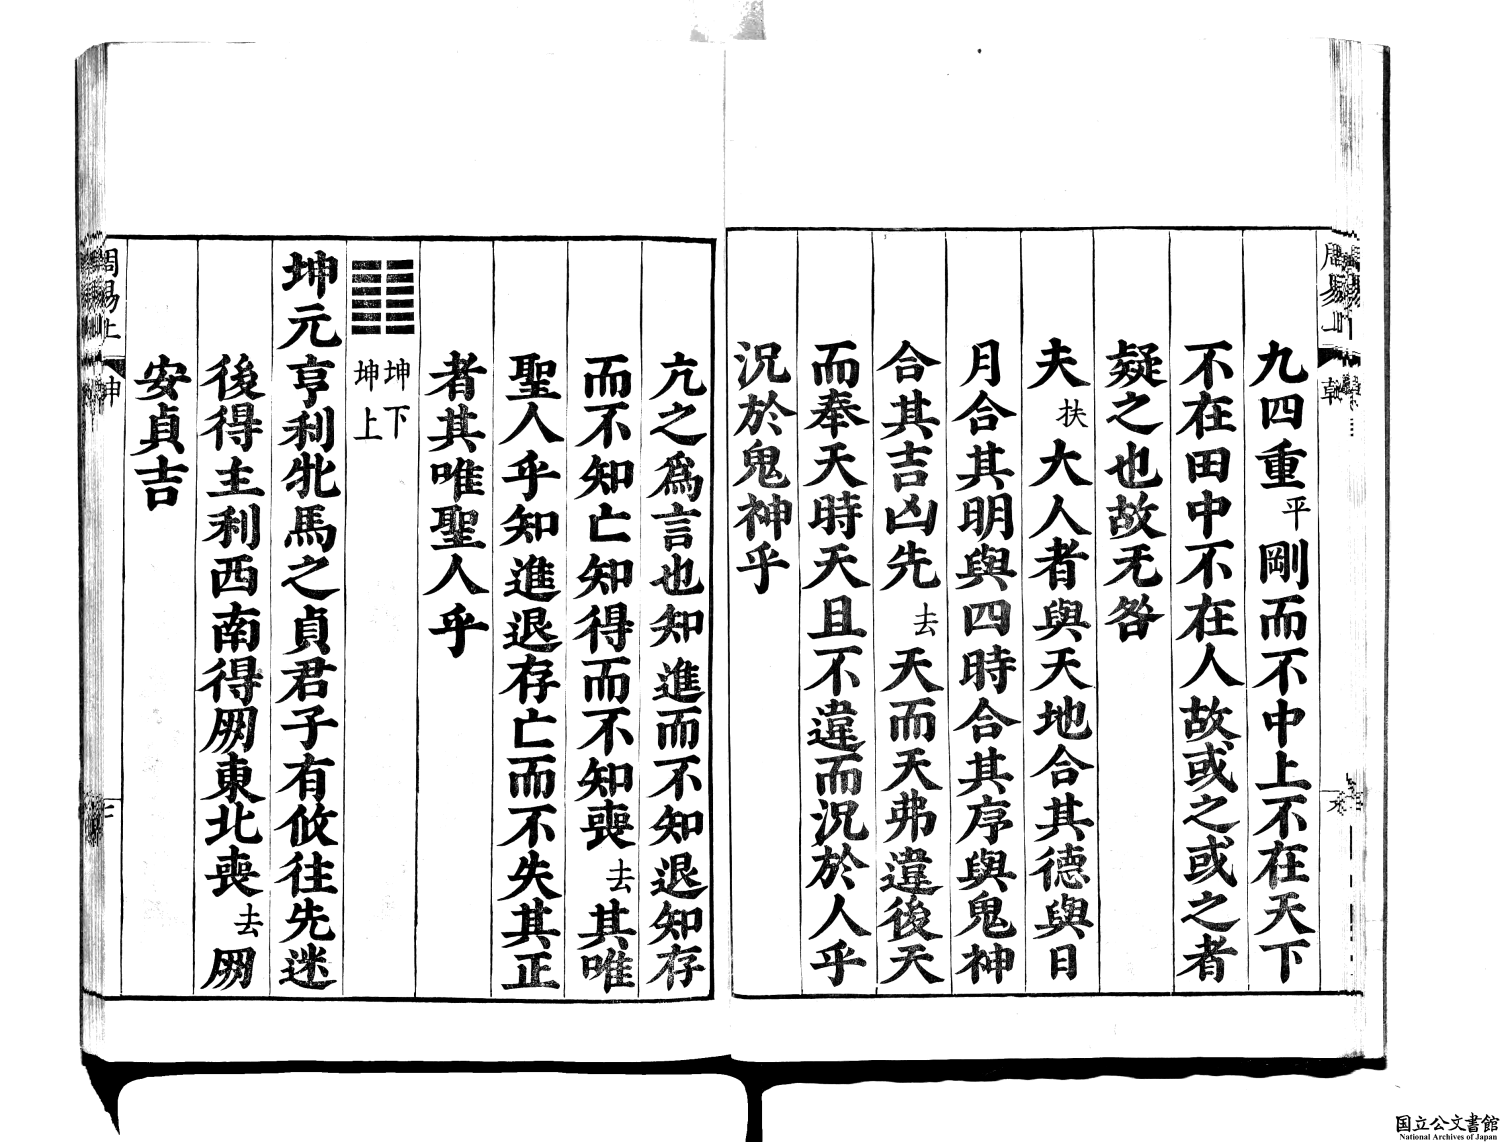 九四重平剛而不中上不在天下
不在田中不在人故或之或之者
疑之也故无咎
夫扶大人者與天地合其德與日
月合其明與四時合其序與鬼神
合其吉凶先去天而天弗違後天
而奉天時天且不違而況於人乎
況於鬼神乎
亢之爲言也知進而不知退知存
而不知亡知得而不知喪去其唯
聖人乎知進退存亡而不失其正
者其唯聖人乎
坤下
坤上
坤元亨利牝馬之貞君子有攸往先迷
後得主利西南得朋東北喪去朋
安貞吉
周易上
坤
周易上
乾
国立公文書館
National Archives of Japan